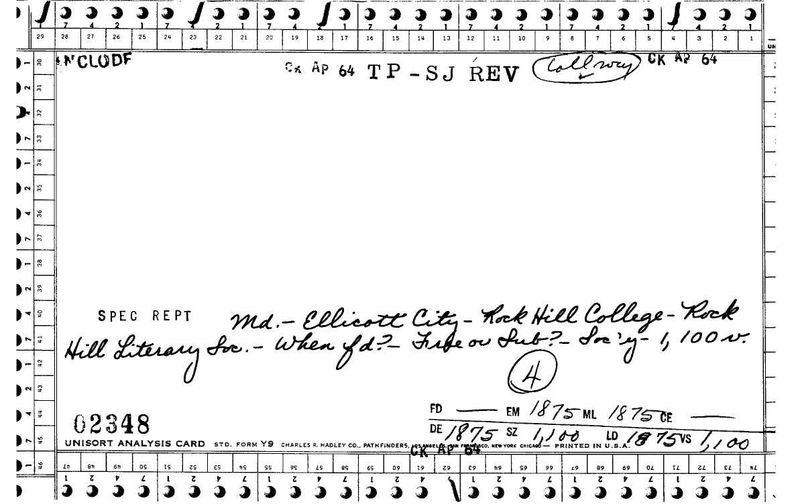 7 4 2 1 7 4 2 1 7 4 2 1 7 4 2 1 7 4 2 1 7 4 2 1 7 4 2 1
29 28 27 26 25 24 23 22 21 20 19 18 17 16 15 14 13 12 11 10 9 8 7 6 5 4 3 2 1
INCLODE CK AP 64 TP-SJ REV CK AP 64
SPEC REPT Md.- Ellicott City - Rock Hill College - Rock
Hill Literary Soc. - When f'd? - Free or Sub? - Soc'y - 1,100 v.
4
FD — EM 1875 ML 1875 CE —
02348 DE 1875 SZ 1,100 LD 1875 VS 1,100
UNISORT ANALYSIS CARD STD. FORM Y9 CHARLES R. HADLEY CO., PATHFINDERS, LOS ANGELES, SAN FRANCISCO, NEW YORK CHICAGO — PRINTED IN U.S.A.
CK AP 64
47 48 49 50 51 52 53 54 55 56 57 58 59 60 61 62 63 64 65 66 67 68 69 70 71 72 73 74